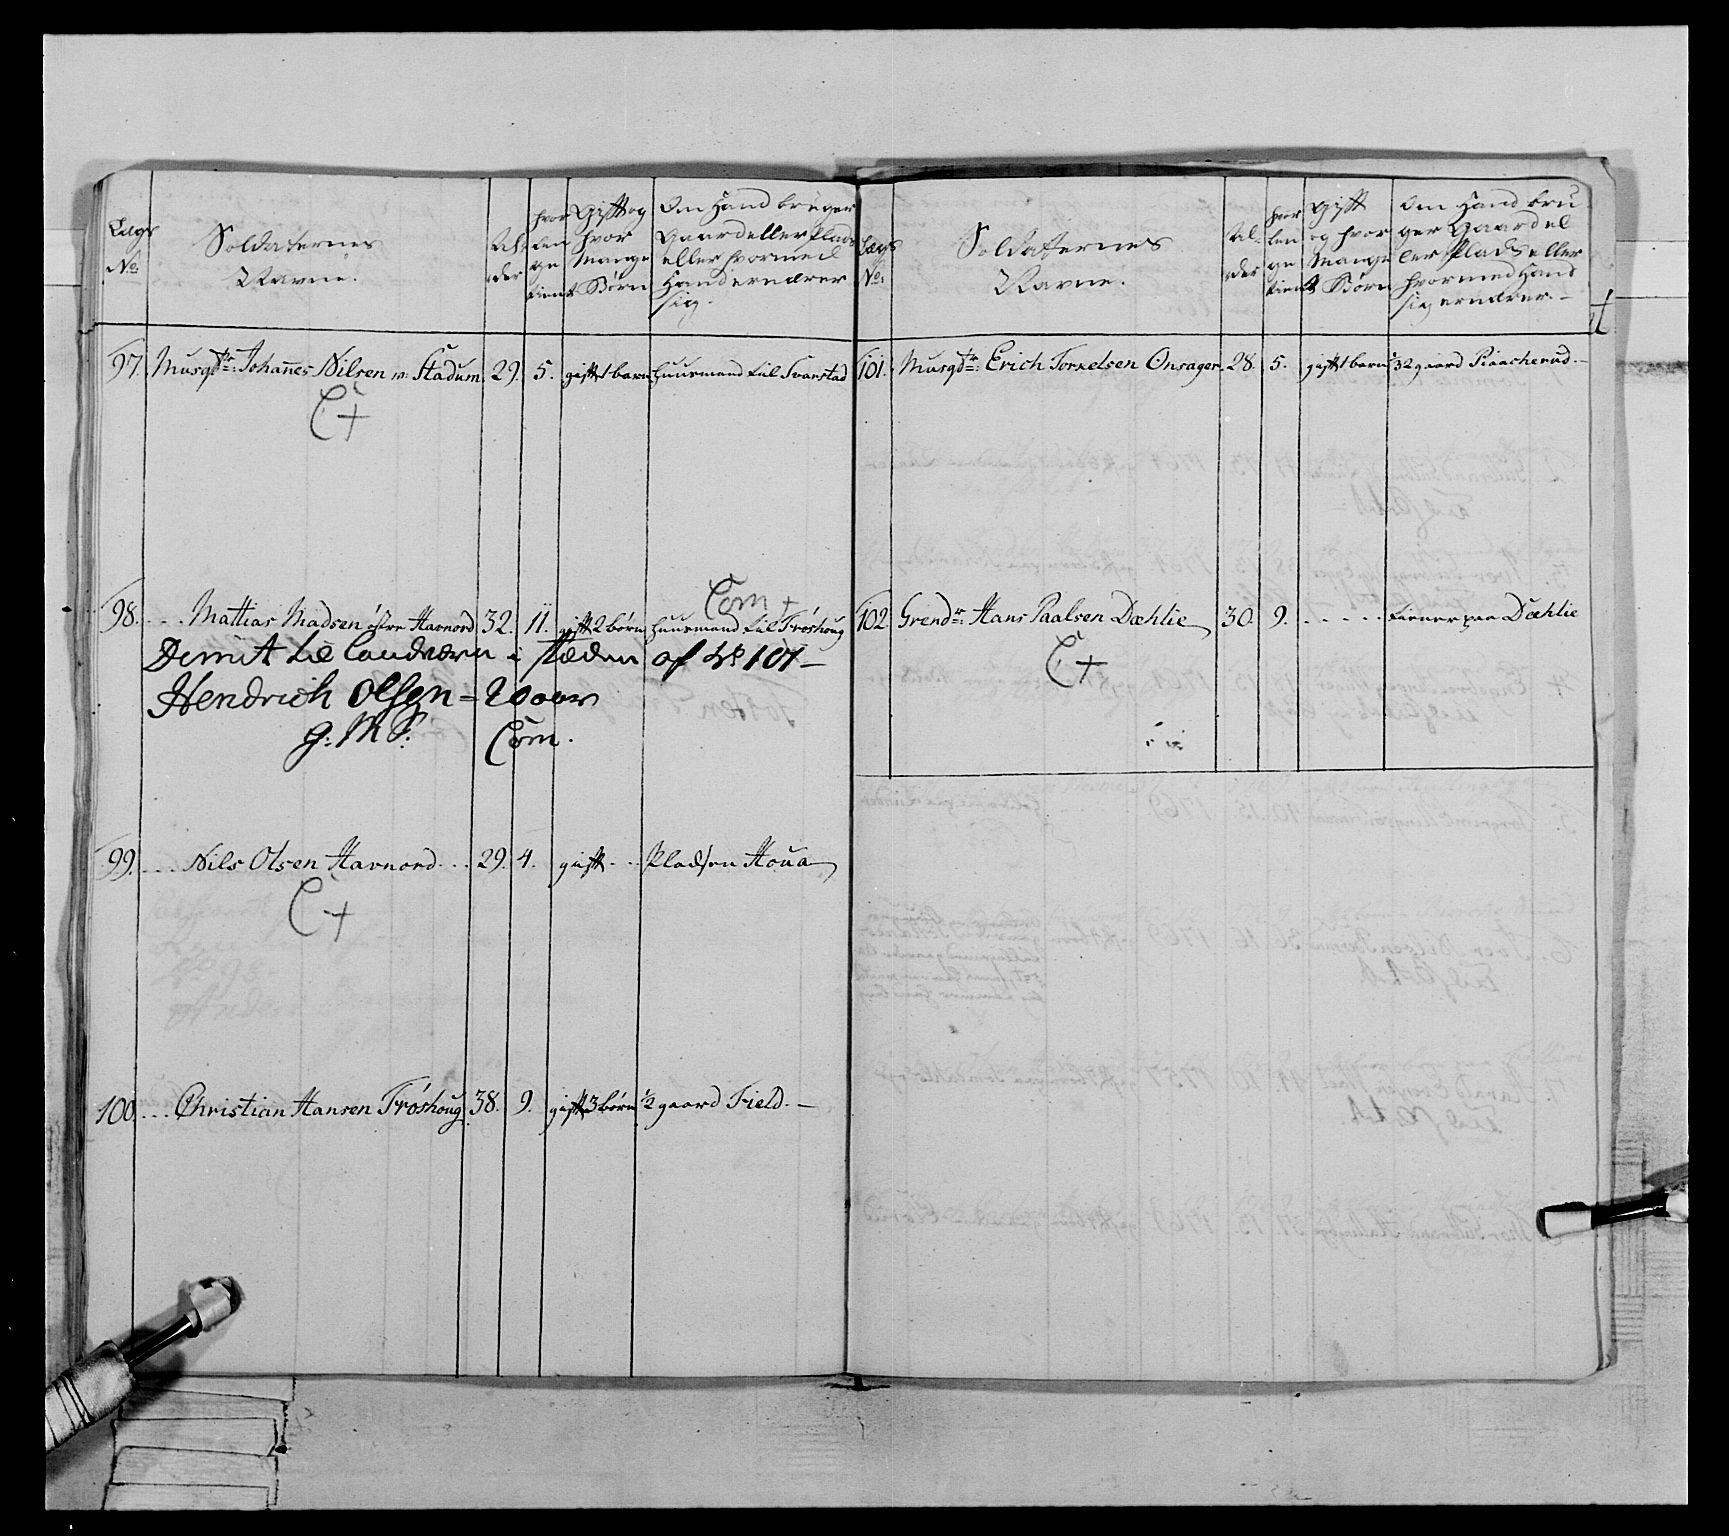 Lægs No:
Soldaternes Navne.
Al- der
hvor len ge tient
Gift og hvor Mange Børn
Om Hand bruger Gaard eller Plads eller hvormed Hand ernærer sig.
97. Musqdtr: Johannes Nilsen v: Stadum 29. 5. gift 1 barn huusmand til Svarstad
C +
Com +
98. . . . Mattias Madsen östre Havnord 32. 11. gift 2 börn huusmand til Fröshoug
Dimit til Landværn i stæden af No 101 –
Hendrich Olsen – 20 aar
g: M S: Com.
99. . . . Nils Olsen Havnord . . . 29. 4. gift . . . Pladsen Houa
C +
100. . . . Christian Hansen Fröshoug 38. 9. gift 3 börn 1/2 gaard Field. –
Lægs No:
Soldatternes Navne.
Al- der
hvor len ge tient
Gift og hvor Mange Børn
Om Hand bru ger Gaard el ler Plads eller hvormed Hand sig ernærer. –
101. Musqdtr: Erich Torkelsen Onsager 28. 5. gift 1 barn 32 gaard Raacherud. –
102. Grendr: Hans Paalsen Dæhlie 30. 9. . . . . . tiener paa Dæhlie
C +